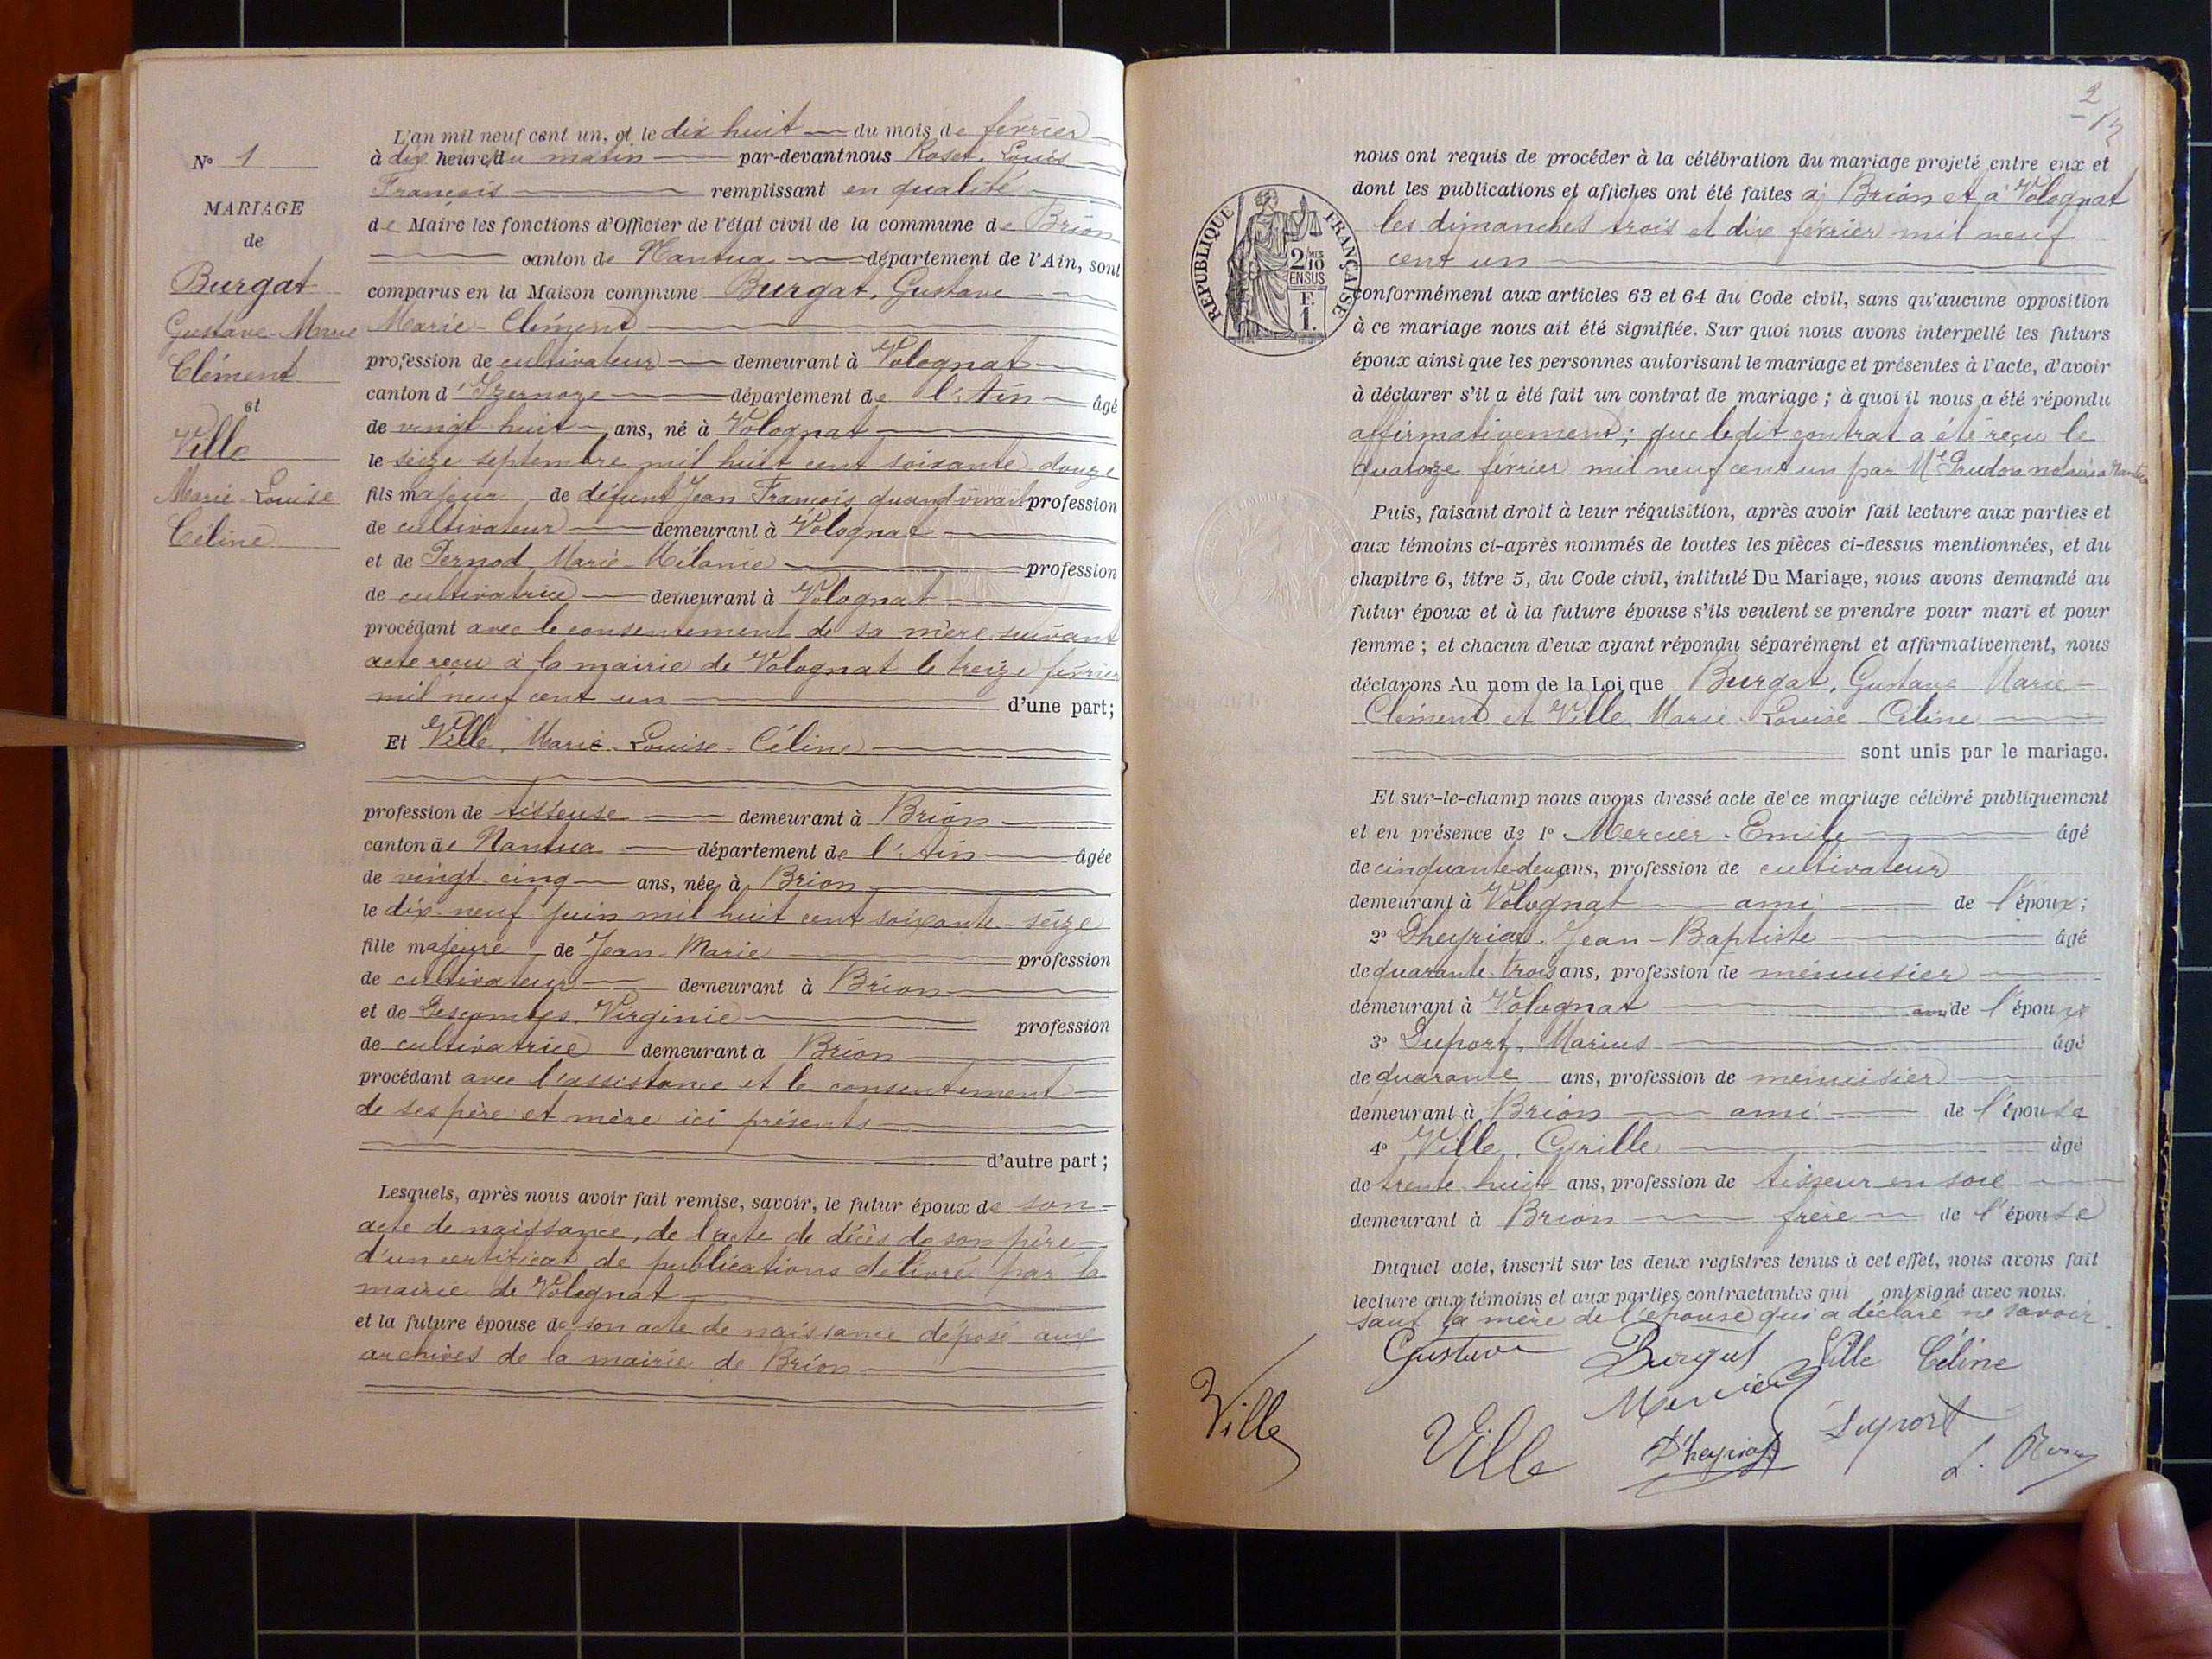 N° 1
MARIAGE
de
Burgat
Gustave-Marie
Clément
et
Ville
Marie-Louise
Céline
L'an mil neuf cent un, et le dix huit du mois de février
à dix heures du matin par-devant nous Roset, Louis
François remplissant en qualité
de Maire les fonctions d'Officier de l'état civil de la commune de Brion
canton de Nantua département de l'Ain, sont
comparus en la Maison commune Burgat, Gustave
Marie-Clément
profession de cultivateur demeurant à Volognat
canton d'Izernore département de l'Ain âgé
de vingt-huit ans, né à Volognat
le seize septembre mil huit cent soixante douze
fils majeur de défunt Jean François quand vivait profession
de cultivateur demeurant à Volognat
et de Pernod Marie-Mélanie profession
de cultivatrice demeurant à Volognat
procédant avec le consentement de sa mère suivant
acte reçu à la mairie de Volognat le treize février
mil neuf cent un d'une part;
Et Ville, Marie-Louise-Céline
profession de tisseuse demeurant à Brion
canton de Nantua département de l'Ain âgée
de vingt-cinq ans, née à Brion
le dix-neuf juin mil huit cent soixante-seize
fille majeure de Jean-Marie profession
de cultivateur demeurant à Brion
et de Descombes, Virginie profession
de cultivatrice demeurant à Brion
procédant avec l'assistance et le consentement
de ses père et mère ici présents
d'autre part;
Lesquels, après nous avoir fait remise, savoir, le futur époux de son
acte de naissance, de l'acte de décès de son père
d'un certificat de publications délivré par la
mairie de Volognat
et la future épouse de son acte de naissance déposé aux
archives de la mairie de Brion
2
RÉPUBLIQUE FRANÇAISE
2/10 EN SUS
F. 1.
nous ont requis de procéder à la célébration du mariage projeté entre eux et
dont les publications et affiches ont été faites à Brion et à Volognat
les dimanches trois et dix février mil neuf
cent un
conformément aux articles 63 et 64 du Code civil, sans qu'aucune opposition
à ce mariage nous ait été signifiée. Sur quoi nous avons interpellé les futurs
époux ainsi que les personnes autorisant le mariage et présentes à l'acte, d'avoir
à déclarer s'il a été fait un contrat de mariage ; à quoi il nous a été répondu
affirmativement; que ledit contrat a été reçu le
quatorze février mil neuf cent un par Me Prudon notaire à Nantua
Puis, faisant droit à leur réquisition, après avoir fait lecture aux parties et
aux témoins ci-après nommés de toutes les pièces ci-dessus mentionnées, et du
chapitre 6, titre 5, du Code civil, intitulé Du Mariage, nous avons demandé au
futur époux et à la future épouse s'ils veulent se prendre pour mari et pour
femme ; et chacun d'eux ayant répondu séparément et affirmativement, nous
déclarons Au nom de la Loi que Burgat, Gustave Marie-
Clément et Ville Marie Louise-Céline
sont unis par le mariage.
Et sur-le-champ nous avons dressé acte de ce mariage célébré publiquement
et en présence de 1° Mercier Emile âgé
de cinquante deux ans, profession de cultivateur
demeurant à Volognat ami de l'époux;
2° Dheyriat Jean-Baptiste âgé
de quarante trois ans, profession de menuisier
demeurant à Volognat ami de l'époux
3° Duport, Marius âgé
de quarante ans, profession de menuisier
demeurant à Brion ami de l'épouse
4° Ville, Cyrille âgé
de trente huit ans, profession de tisseur en soie
demeurant à Brion frère de l'épouse
Duquel acte, inscrit sur les deux registres tenus à cet effet, nous avons fait
lecture aux témoins et aux parties contractantes qui ont signé avec nous.
sauf la mère de l'épouse qui a déclaré ne savoir.
Gustave Burgat Ville Céline
Mercier
Ville Ville Dheyriat Duport